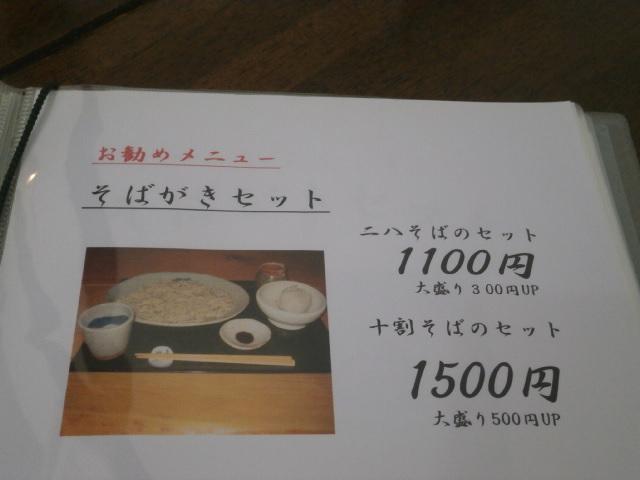 お勧めメニュー
そばがきセット
二八そばのセット
1100円
大盛り300円UP
十割そばのセット
1500円
大盛り500円UP